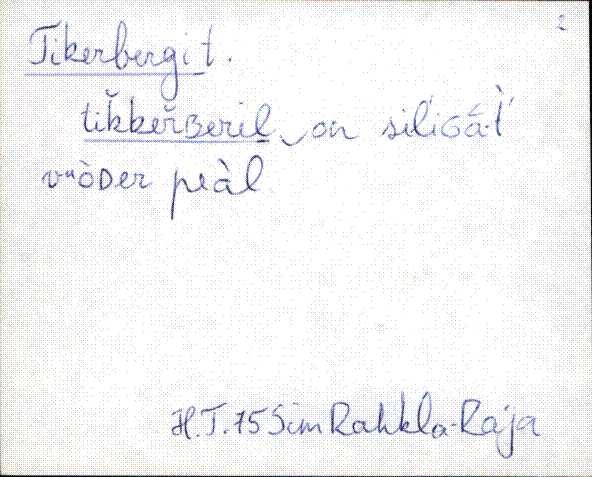 2
Tikerbergit.
tik̆ker̆ʙeril on siliɢá·t̀
vᵘòᴅer peàl
H.T. 75 Sim Rahkla-Raja